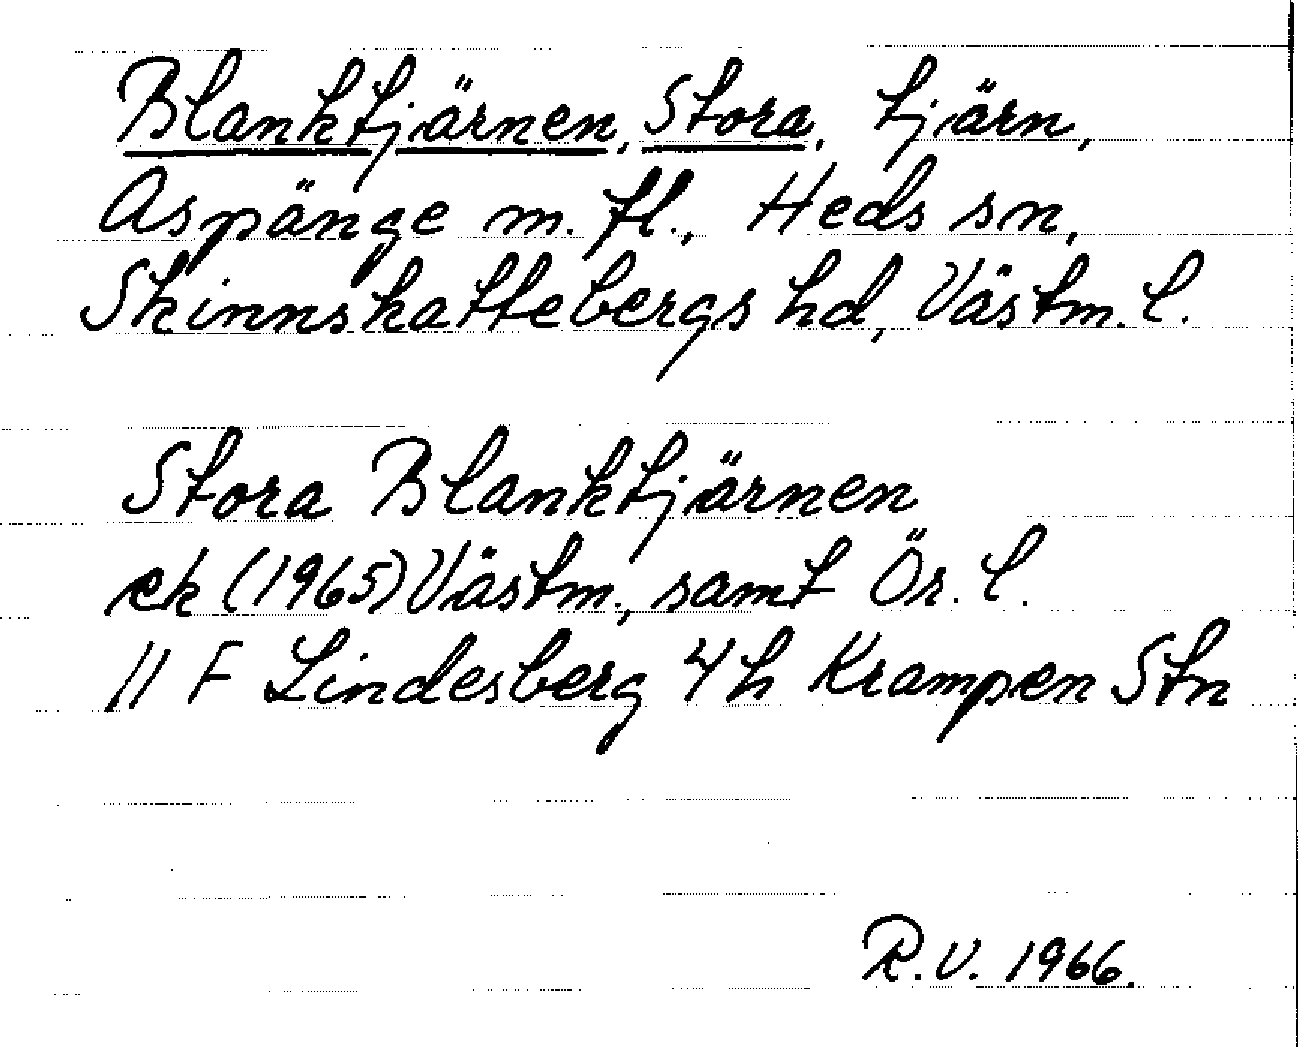 Blanktjärnen, Stora, tjärn,
Aspänge m. fl., Heds sn,
Skinnskattebergs hd, Västm. l.
Stora Blanktjärnen
ek (1965) Västm., samt Ör. l.
11 F Lindesberg 4 h Krampen Stn
R.V. 1966.